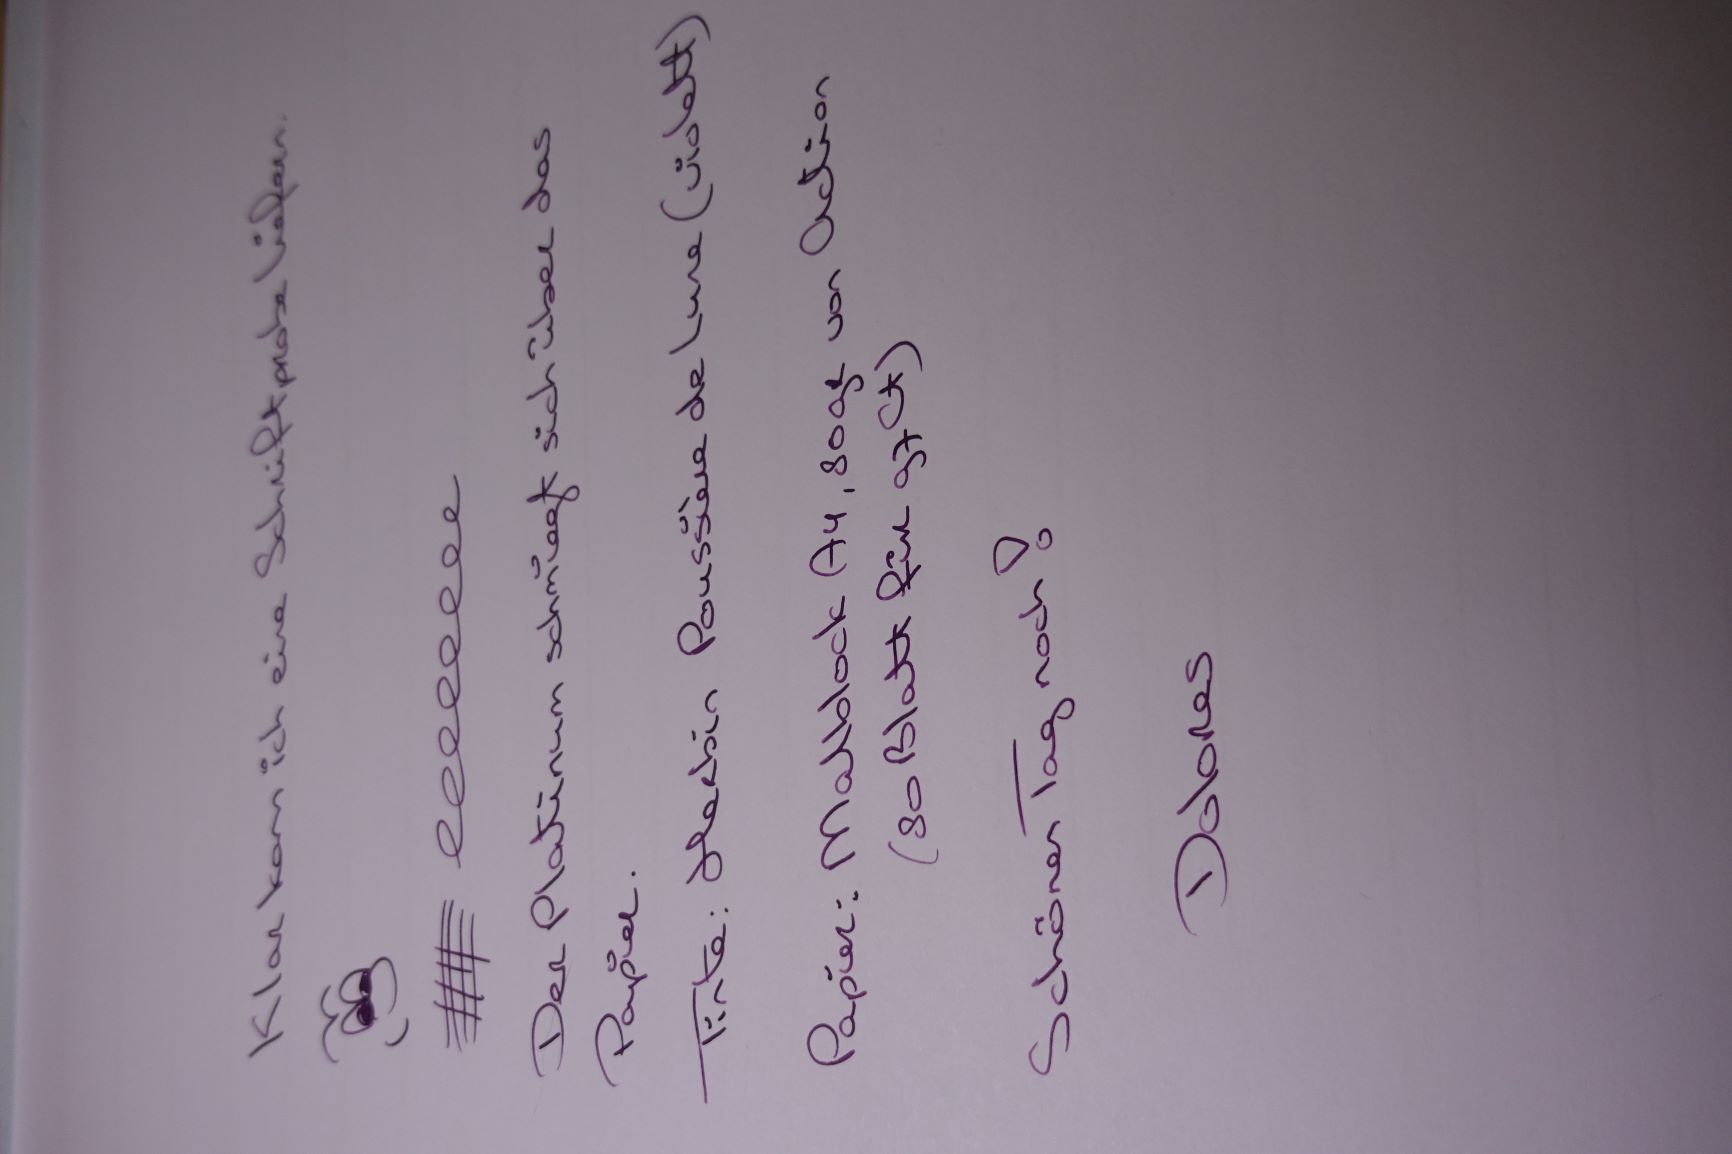 Klar kann ich eine Schriftprobe liefern.
Der Platinum schmiegt sich über das
Papier.
Tinte: Herbin Poussière de Lune (violett)
Papier: Malblock A4, 80gr von Action
(80 Blatt für 97 Ct)
Schönen Tag noch!
Dolores